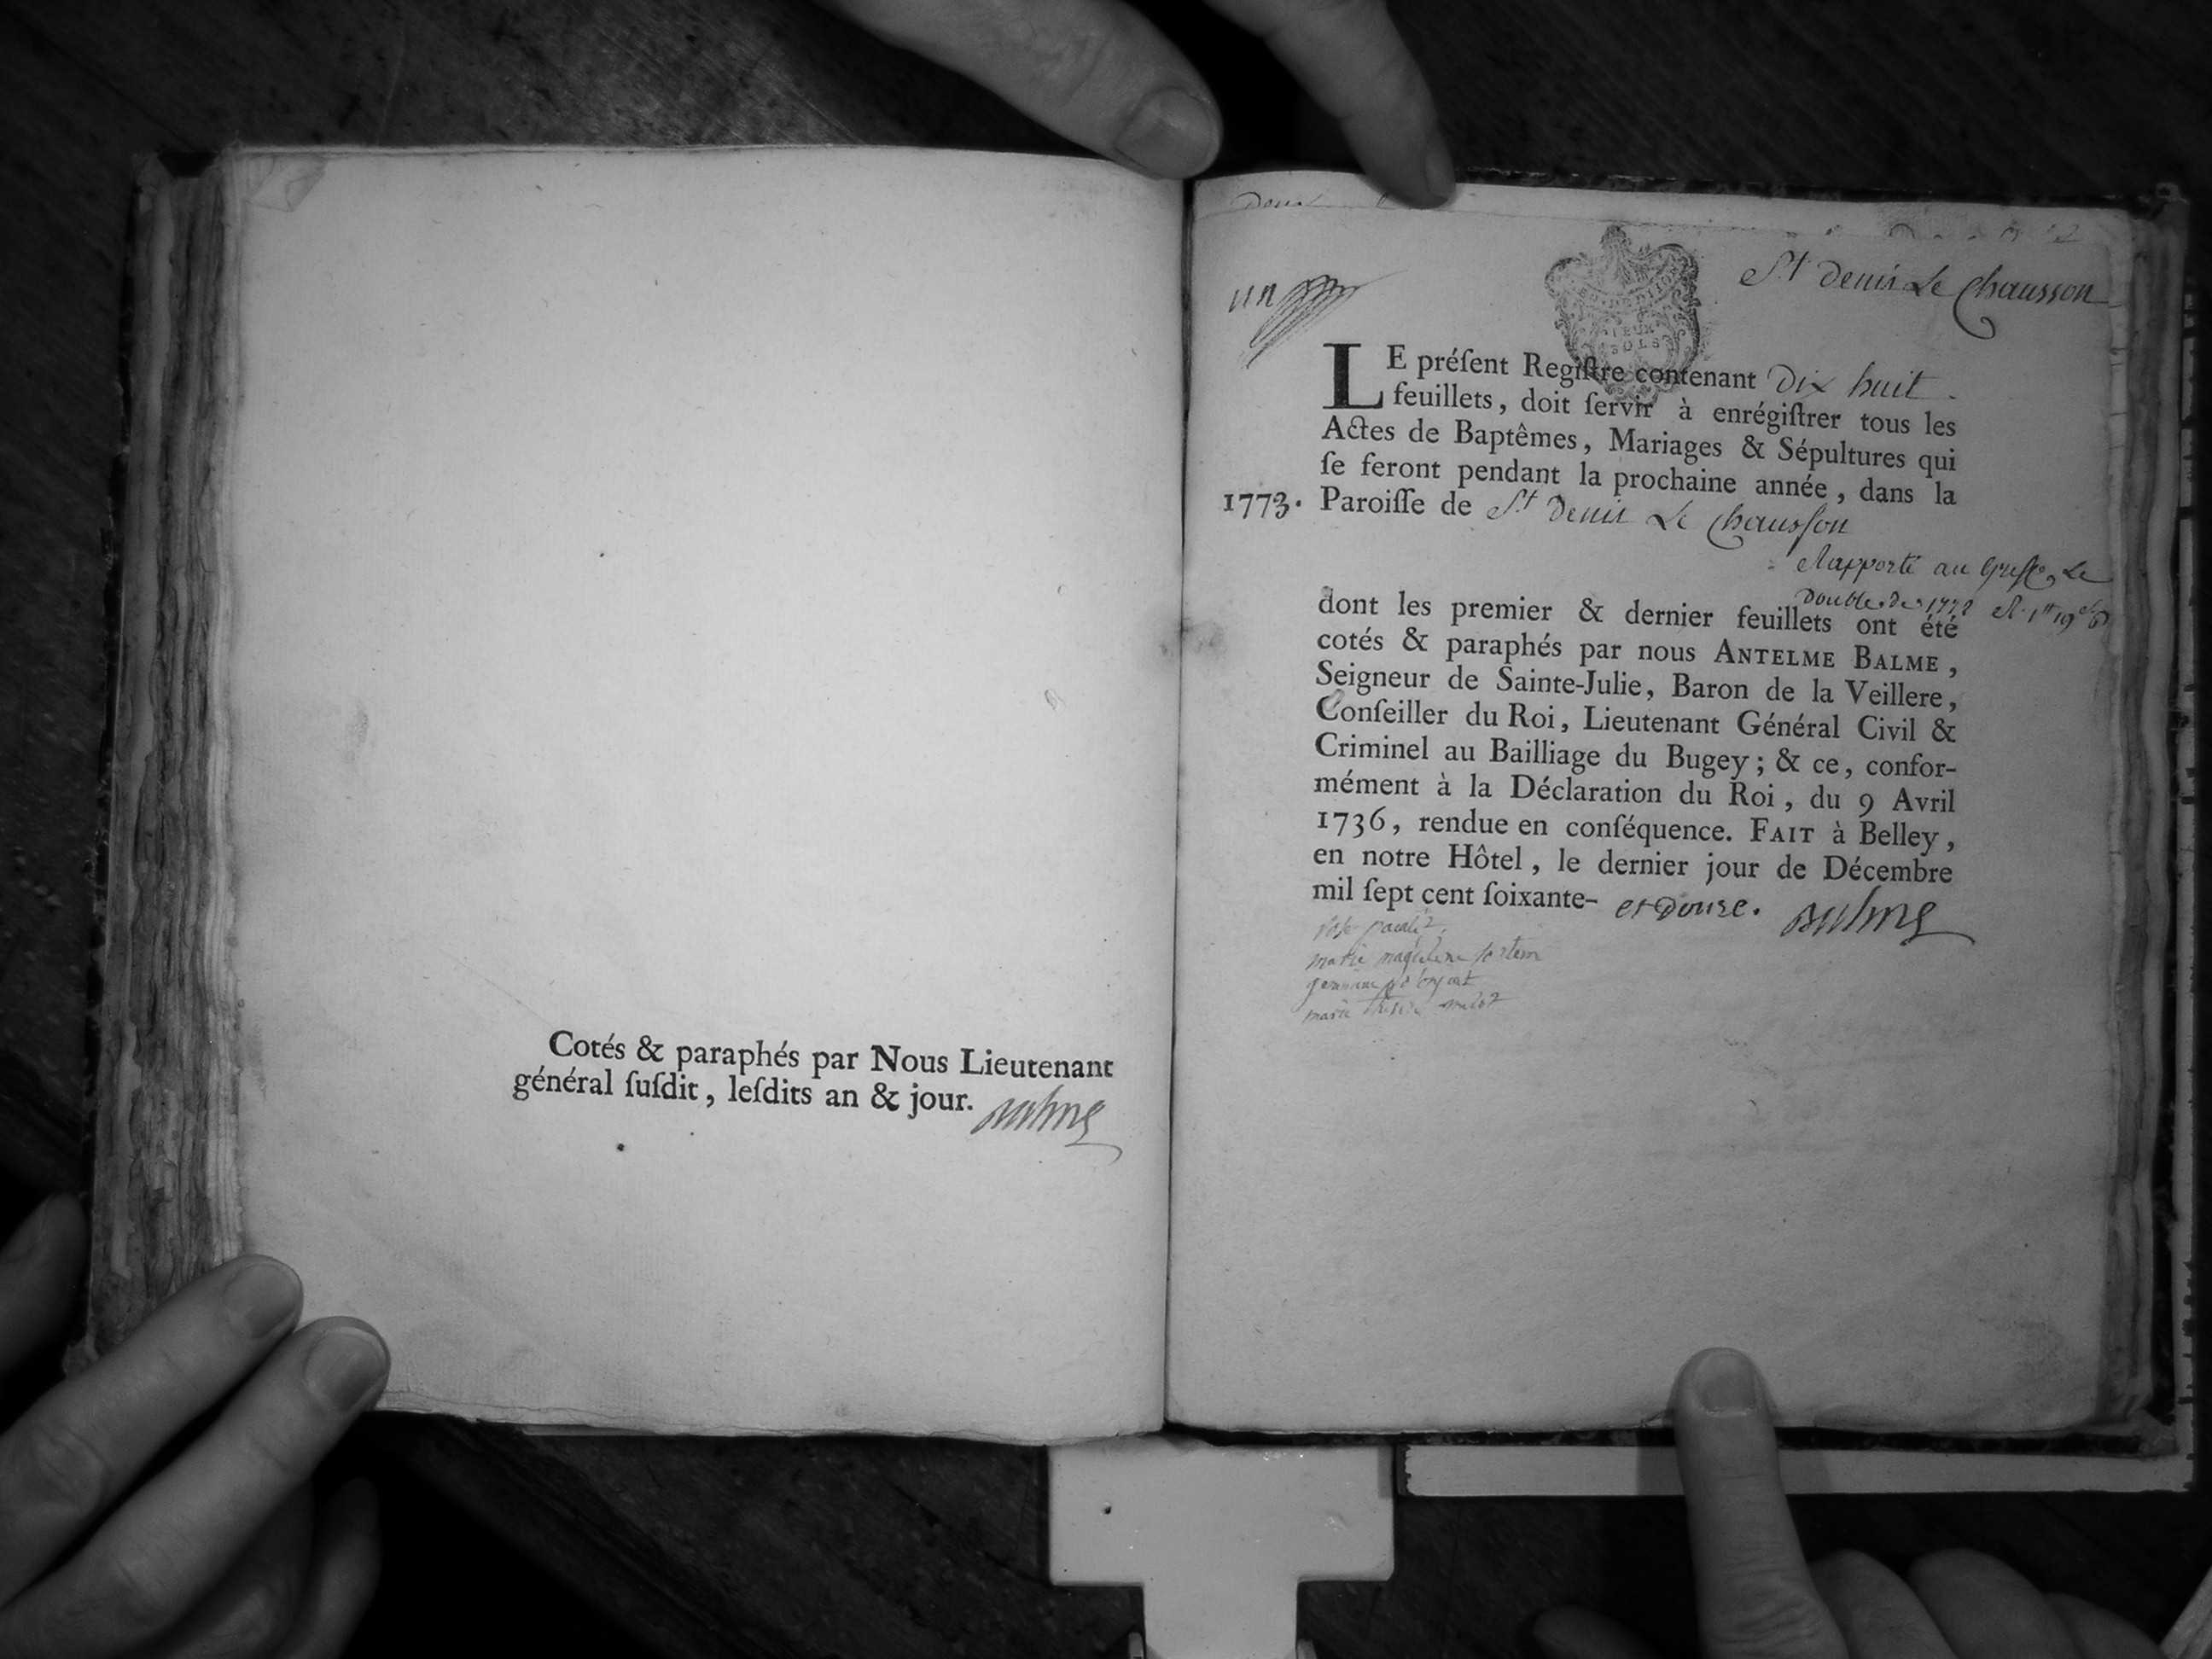 Cotés & paraphés par Nous Lieutenant
général ſuſdit, leſdits an & jour. Balme
St denis Le Chausson
un
DEUX
SOLS
LE préſent Regiſtre contenant Dix huit
feuillets, doit ſervir à enrégiſtrer tous les
Actes de Baptêmes, Mariages & Sépultures qui
ſe feront pendant la prochaine année, dans la
1773. Paroiſſe de St Denis Le Chausſon
Rapporté au Greffe, Le
Double de 1772
dont les premier & dernier feuillets ont été
cotés & paraphés par nous ANTELME BALME,
Seigneur de Sainte-Julie, Baron de la Veillere,
Conſeiller du Roi, Lieutenant Général Civil &
Criminel au Bailliage du Bugey; & ce, confor-
mément à la Déclaration du Roi, du 9 Avril
1736, rendue en conſéquence. FAIT à Belley,
en notre Hôtel, le dernier jour de Décembre
mil ſept cent ſoixante- et Douze. Balme
marie magdelene
marie